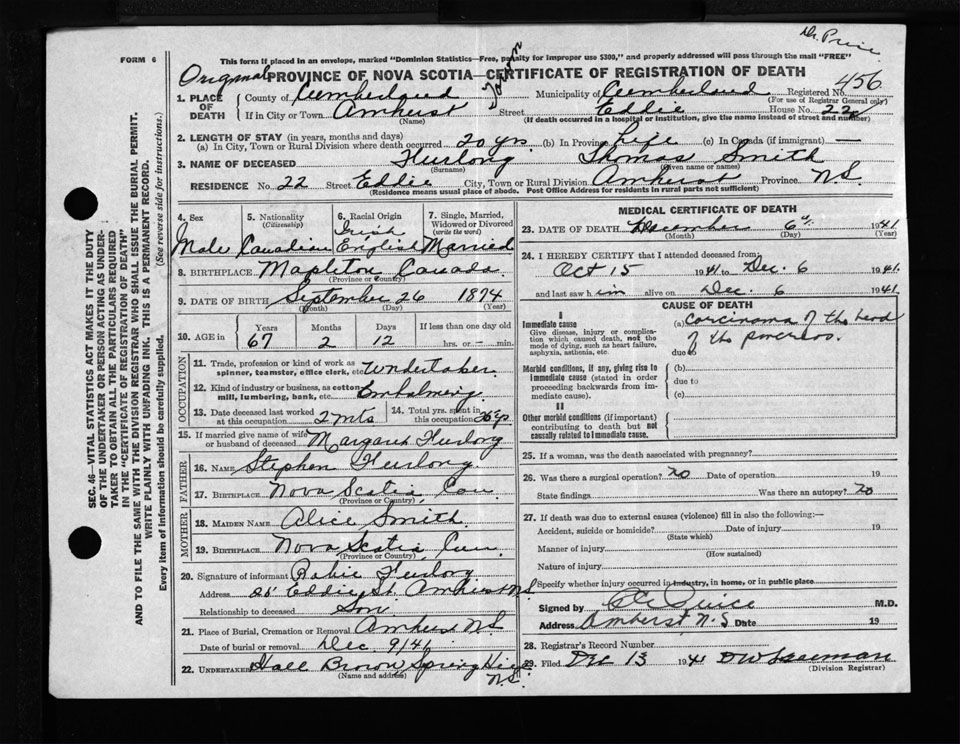 Dr. Price
FORM 6
This form if placed in an envelope, marked "Dominion Statistics—Free, penalty for improper use $300," and properly addressed will pass through the mail "FREE"
Original PROVINCE OF NOVA SCOTIA—CERTIFICATE OF REGISTRATION OF DEATH
1. PLACE OF DEATH County of Cumberland Municipality of Cumberland Registered No. 456
(For use of Registrar General only)
If in City or Town Amherst Street Eddie House No. 22
(Name) (If death occurred in a hospital or institution, give the name instead of street and number)
2. LENGTH OF STAY (in years, months and days)
(a) In City, Town or Rural Division where death occurred 20 yrs (b) In Province Life (c) In Canada (if immigrant) —
3. NAME OF DECEASED Furlong Thomas Smith
(Surname) (Given name or names)
RESIDENCE No. 22 Street Eddie City, Town or Rural Division Amherst Province N.S.
(Residence means usual place of abode. Post Office Address for residents in rural parts not sufficient)
4. Sex 5. Nationality (Citizenship) 6. Racial Origin 7. Single, Married, Widowed or Divorced (write the word)
Male Canadian Irish English Married
8. BIRTHPLACE Mapleton Canada
(Province or Country)
9. DATE OF BIRTH September 26 1874
(Month) (Day) (Year)
10. AGE in Years Months Days If less than one day old
67 2 12 hrs. or — min.
OCCUPATION
11. Trade, profession or kind of work as spinner, teamster, office clerk, etc. Undertaker
12. Kind of industry or business, as cotton mill, lumbering, bank, etc. Embalming
13. Date deceased last worked at this occupation 2 mts 14. Total yrs. spent in this occupation
15. If married give name of wife or husband of deceased Margaret Furlong
FATHER
16. NAME Stephen Furlong
17. BIRTHPLACE Nova Scotia Can
(Province or Country)
MOTHER
18. MAIDEN NAME Alice Smith
19. BIRTHPLACE Nova Scotia Can
(Province or Country)
20. Signature of informant Robie Furlong
Address Eddie St. Amherst N.S.
Relationship to deceased Son
21. Place of Burial, Cremation or Removal Amherst N.S.
Date of burial or removal Dec. 9/41
22. UNDERTAKER Hall Brown Spring Hill N.S.
(Name and address)
MEDICAL CERTIFICATE OF DEATH
23. DATE OF DEATH December 6th 1941
(Month) (Day) (Year)
24. I HEREBY CERTIFY that I attended deceased from:
Oct 15 1941 to Dec. 6 1941
and last saw him alive on Dec. 6 1941
CAUSE OF DEATH
I
Immediate cause (a) carcinoma of the head of the pancreas.
Give disease, injury or complication which caused death, not the mode of dying, such as heart failure, asphyxia, asthenia, etc.
due to
Morbid conditions, if any, giving rise to immediate cause (stated in order proceeding backwards from immediate cause).
(b)
due to
(c)
II
Other morbid conditions (if important) contributing to death but not causally related to immediate cause.
25. If a woman, was the death associated with pregnancy?
26. Was there a surgical operation? no Date of operation 19
State findings Was there an autopsy? no
27. If death was due to external causes (violence) fill in also the following:—
Accident, suicide or homicide? Date of injury 19
(State which)
Manner of injury
(How sustained)
Nature of injury
Specify whether injury occurred in industry, in home, or in public place
Signed by Price M.D.
Address Amherst N.S Date 19
28. Registrar's Record Number
29. Filed Dec 13 1941
(Division Registrar)
SEC. 46—VITAL STATISTICS ACT MAKES IT THE DUTY
OF THE UNDERTAKER OR PERSON ACTING AS UNDER-
TAKER TO OBTAIN ALL THE PARTICULARS REQUIRED
IN THE "CERTIFICATE OF REGISTRATION OF DEATH"
AND TO FILE THE SAME WITH THE DIVISION REGISTRAR WHO SHALL ISSUE THE BURIAL PERMIT.
WRITE PLAINLY WITH UNFADING INK. THIS IS A PERMANENT RECORD.
Every item of information should be carefully supplied. (See reverse side for instructions.)